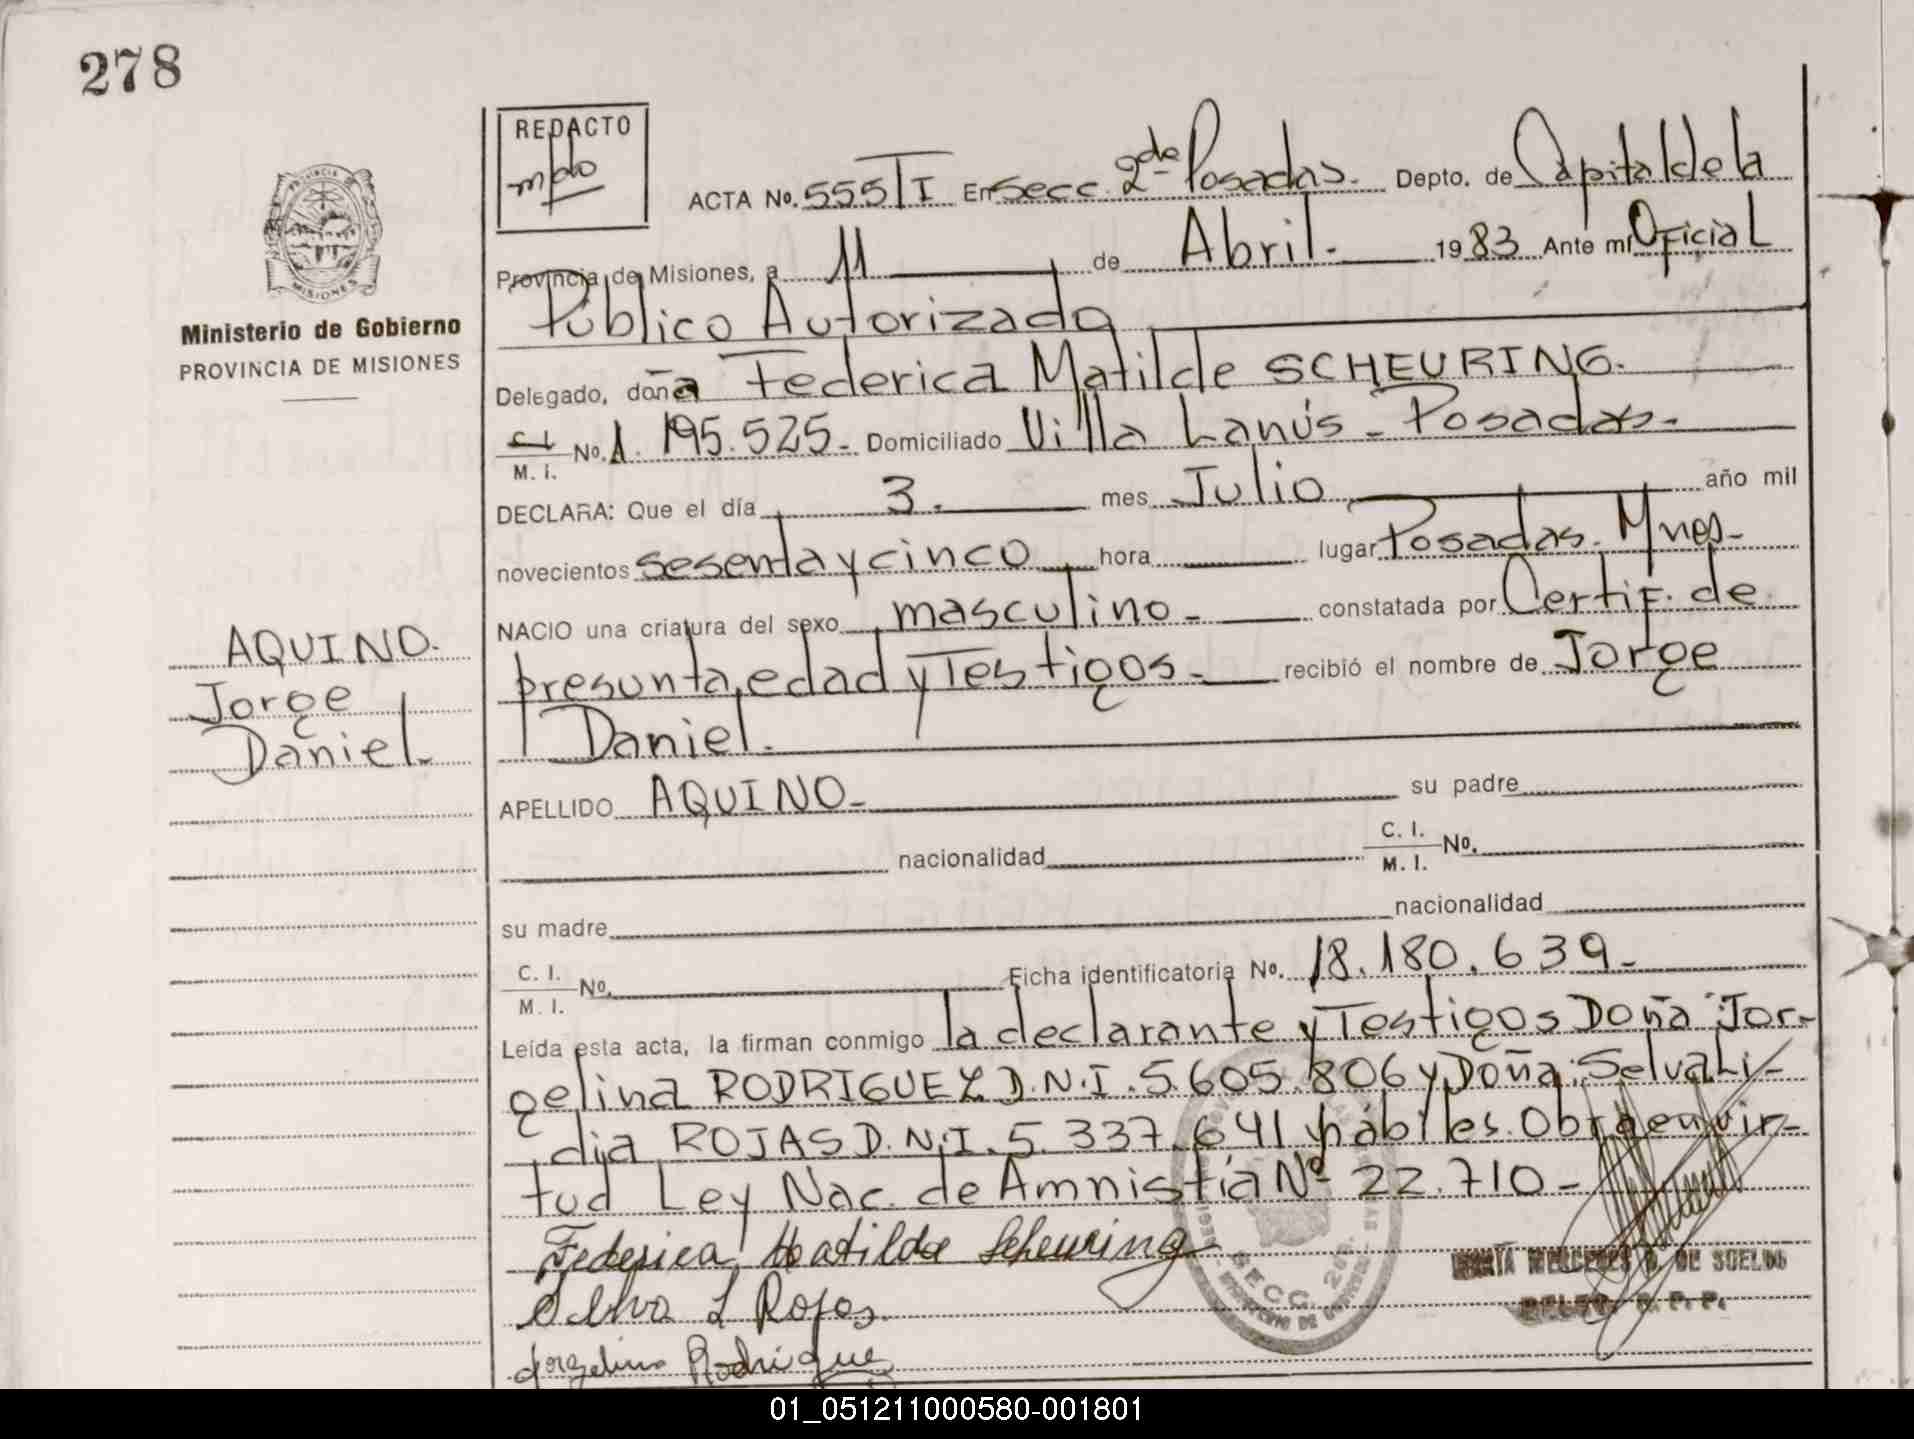 278
REDACTO
mpdo
ACTA No. 555 T I En Secc. 2da Posadas. Depto. de Capital de la
Provincia de Misiones, a 11 de Abril. 1983 Ante mí Oficial
Público Autorizado
PROVINCIA
MISIONES
Ministerio de Gobierno
PROVINCIA DE MISIONES
Delegado, doña Federica Matilde SCHEURING.
C.I. / M. I. No. 1.195.525- Domiciliado Villa Lanús - Posadas-
DECLARA: Que el día 3. mes Julio año mil
novecientos sesenta y cinco hora lugar Posadas. Mnes-
NACIO una criatura del sexo masculino - constatada por Certif. de
presunta edad y Testigos - recibió el nombre de Jorge
Daniel.
AQUINO.
Jorge
Daniel.
APELLIDO AQUINO- su padre
nacionalidad C. I. / M. I. No.
su madre nacionalidad
C. I. / M. I. No. Ficha identificatoria No. 18.180.639-
Leída esta acta, la firman conmigo la declarante y Testigos Doña Jor-
gelina RODRIGUEZ D.N.I. 5.605.806 y Doña Selva Li-
dia ROJAS D.N.I. 5.337.641 hábiles. Obra en vir-
tud Ley Nac. de Amnistía Nº 22.710-
Federica Matilde Scheuring
MARÍA MERCEDES DE SUELDO
DELEG. R. P. P.
SECC. 2da
Selva L Rojas.
Jorgelina Rodrigue
01_051211000580-001801